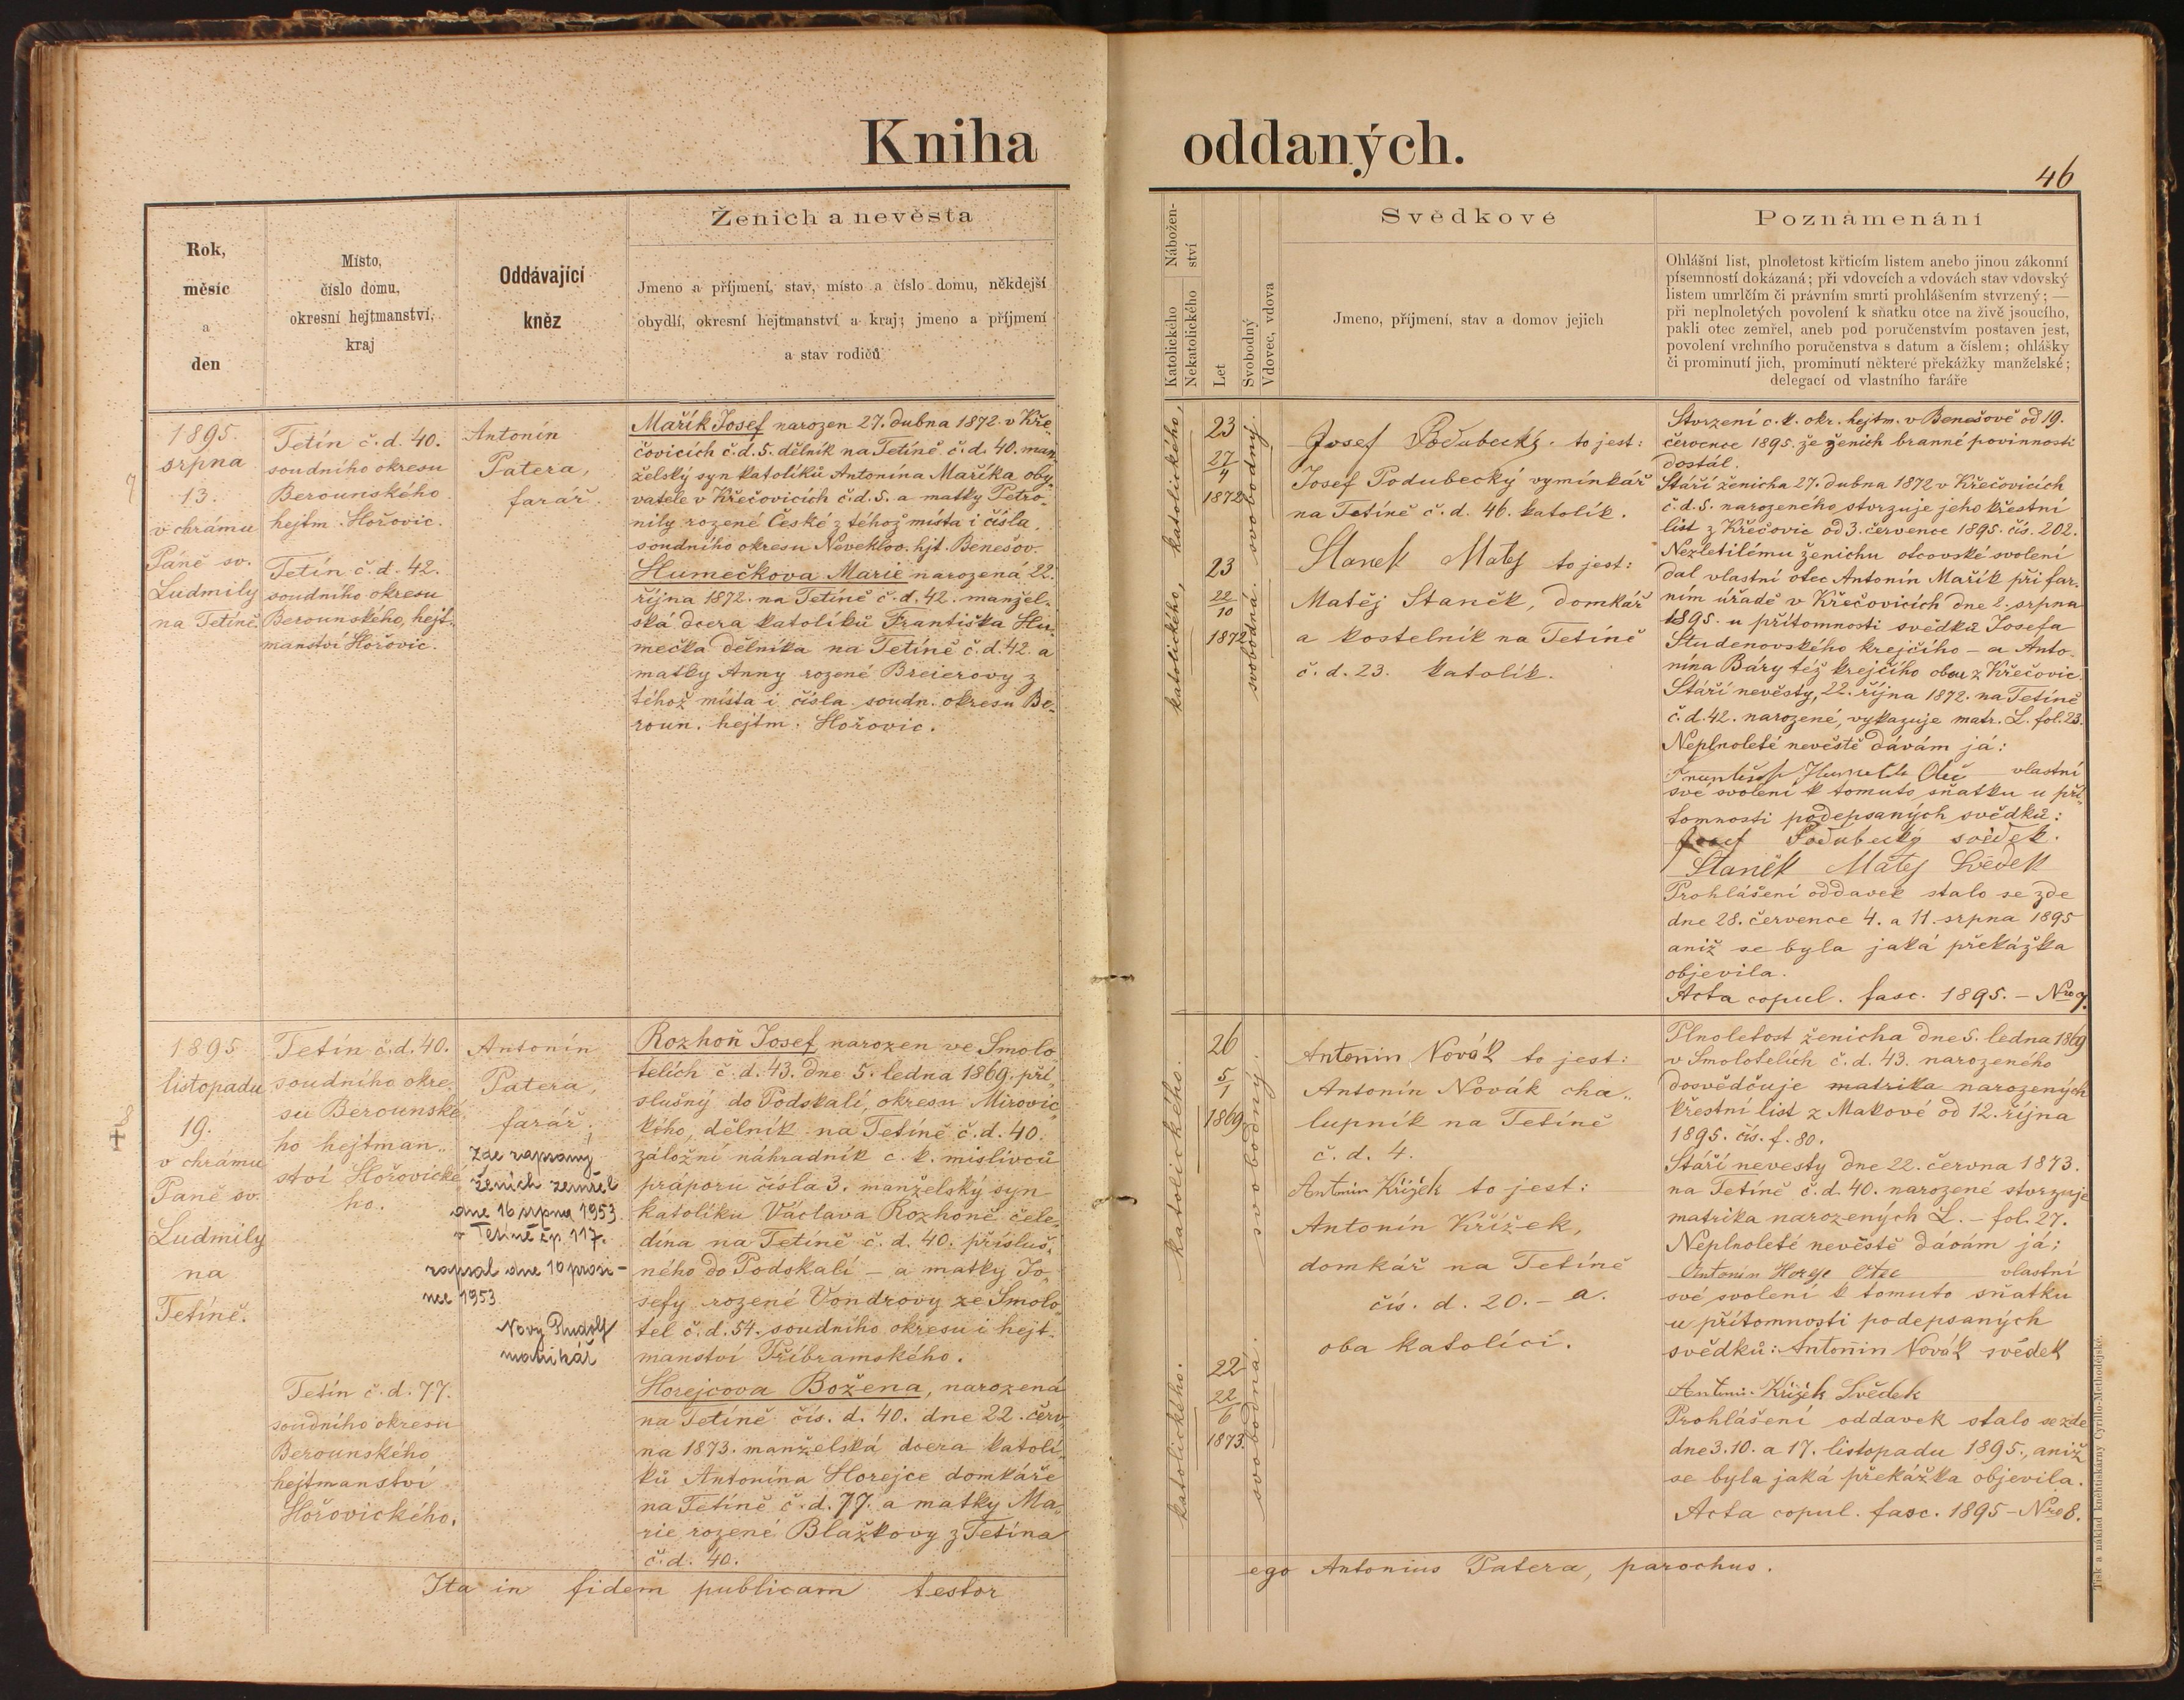 Kniha oddaných.
46
Rok,
měsíc
a
den
Místo,
číslo domu,
okresní hejtmanství,
kraj
Oddávající
kněz
Ženich a nevěsta
Jmeno a příjmení, stav, místo a číslo domu, někdejší
obydlí, okresní hejtmanství a kraj; jmeno a příjmení
a stav rodičů
Nábožen-
ství
Katolického
Nekatolického
Let
Svobodný
Vdovec, vdova
Svědkové
Jmeno, příjmení, stav a domov jejich
Poznamenání
Ohlášní list, plnoletost křticím listem anebo jinou zákonní
písemností dokázaná; při vdovcích a vdovách stav vdovský
listem umrlčím či právním smrti prohlášením stvrzený; —
při neplnoletých povolení k sňatku otce na živě jsoucího,
pakli otec zemřel, aneb pod poručenstvím postaven jest,
povolení vrchního poručenstva s datum a číslem; ohlášky
či prominutí jich, prominutí některé překážky manželské;
delegací od vlastního faráře
7
1895.
srpna
13.
v chrámu
Páně sv.
Ludmily
na Tetíně.
Tetín č.d. 40.
soudního okresu
Berounského
hejtm. Hořovic.
Tetín č.d. 42.
soudního okresu
Berounského, hejt-
manství Hořovic.
Antonín
Patera,
farář.
Mařík Josef narozen 27. dubna 1872 v Kře-
čovicích č.d. 5. dělník na Tetíně č.d. 40. man-
želský syn katolíků Antonína Maříka oby-
vatele v Křečovicích č.d. 5. a matky Petro-
nily rozené České z téhož místa i čísla.
soudního okresu Neveklov. hjt. Benešov.
Humečkova Marie narozená 22.
října 1872. na Tetíně č.d. 42. manžel-
ská dcera katolíků Františka Hu-
mečka dělníka na Tetíně č.d. 42. a
matky Anny rozené Breierovy z
téhož místa i čísla soudn. okresu Be-
roun. hejtm. Hořovic.
katolického,
katolického,
23
27
4
1872
23
22
10
1872
svobodný.
svobodná.
Josef Podubecký. to jest:
Josef Podubecký vymínkář
na Tetíně č.d. 46. katolík.
Stanek Matej to jest:
Matěj Staněk, domkář
a kostelník na Tetíně
č.d. 23. katolík.
Stvrzení c.k. okr. hejtm. v Benešově od 19.
července 1895. že ženich branné povinnosti
dostál.
Stáří ženicha 27. dubna 1872 v Křečovicích
č.d. 5. narozeného stvrzuje jeho křestní
list z Křečovic od 3. července 1895. čís. 202.
Nezletilému ženichu otcovské svolení
dal vlastní otec Antonín Mařík při far-
ním úřadě v Křečovicích dne 2. srpna
1895. u přítomnosti svědků Josefa
Studenovského krejčího - a Anto-
nína Báry též krejčího obou z Křečovic.
Stáří nevěsty, 22. října 1872. na Tetíně
č.d. 42. narozené, vykazuje matr. L. fol. 23.
Neplnoleté nevěstě dávám já:
vlastní
své svolení k tomuto sňatku u pří-
tomnosti podepsaných svědků:
Josef Podubecký svědek.
Staněk Matej Svědek
Prohlášení oddavek stalo se zde
dne 28. července 4. a 11. srpna 1895
aniž se byla jaká překážka
objevila.
Acta copul. fasc. 1895. - Nro 7.
8
+
1895
listopadu
19.
v chrámu
Paně sv.
Ludmily
na
Tetíně.
Tetín č.d. 40.
soudního okre-
su Berounské-
ho hejtman-
ství Hořovické-
ho.
Tetín č.d. 77.
soudního okresu
Berounského
hejtmanství
Hořovického.
Antonín
Patera,
farář.
Zde zapsaný
ženich zemřel
dne 16 srpna 1953
v Tetíně čp. 117.
zapsal dne 10 prosi-
nce 1953
Nový Rudolf
matrikář
Rozhoň Josef narozen ve Smolo-
telích č.d. 43. dne 5. ledna 1869. pří-
slušný do Podskalí, okresu Mirovic-
kého, dělník na Tetíně č.d. 40.
záložní náhradník c.k. mislivců
práporu čísla 3. manželský syn
katolíku Václava Rozhoně čele-
dína na Tetíně č.d. 40. přísluš-
ného do Podskalí - a matky Jo-
sefy rozené Vondrovy ze Smolo-
tel č.d. 54. soudního okresu i hejt-
manství Příbramského.
Horejcova Božena, narozená
na Tetíně čís. d. 40. dne 22. červ-
na 1873. manželská dcera katolí-
ků Antonína Horejce domkáře
na Tetíně č.d. 77. a matky Ma-
rie rozené Blažkovy z Tetína
č.d. 40.
katolického.
katolického.
26
5
1
1869
22
22
6
1873.
svobodný.
svobodná.
Antonin Novák to jest:
Antonín Novák cha-
lupník na Tetíně
č.d. 4.
Antonin Křížek to jest:
Antonín Křížek,
domkář na Tetíně
čís. d. 20. - a.
oba katolíci.
Plnoletost ženicha dne 5. ledna 1869
v Smolotelích č.d. 43. narozeného
dosvědčuje matrika narozených
křestní list z Makové od 12. října
1895. čís. f. 80.
Stáří nevesty dne 22. června 1873.
na Tetíně č.d. 40. narozené stvrzuje
matrika narozených L. - fol. 27.
Neplnoleté nevěstě dávám já:
Antonin Horejc Otec vlastní
své svolení k tomuto sňatku
u přítomnosti podepsaných
svědků: Antonin Novák svědek
Antonin Křížek Svědek
Prohlášení oddavek stalo se zde
dne 3. 10. a 17. listopadu 1895., aniž
se byla jaká překážka objevila.
Acta copul. fasc. 1895 - Nro 8.
Ita in fidem publicam testor ego Antonius Patera, parochus.
Tisk a náklad knihtiskárny Cyrillo-Methodějské.